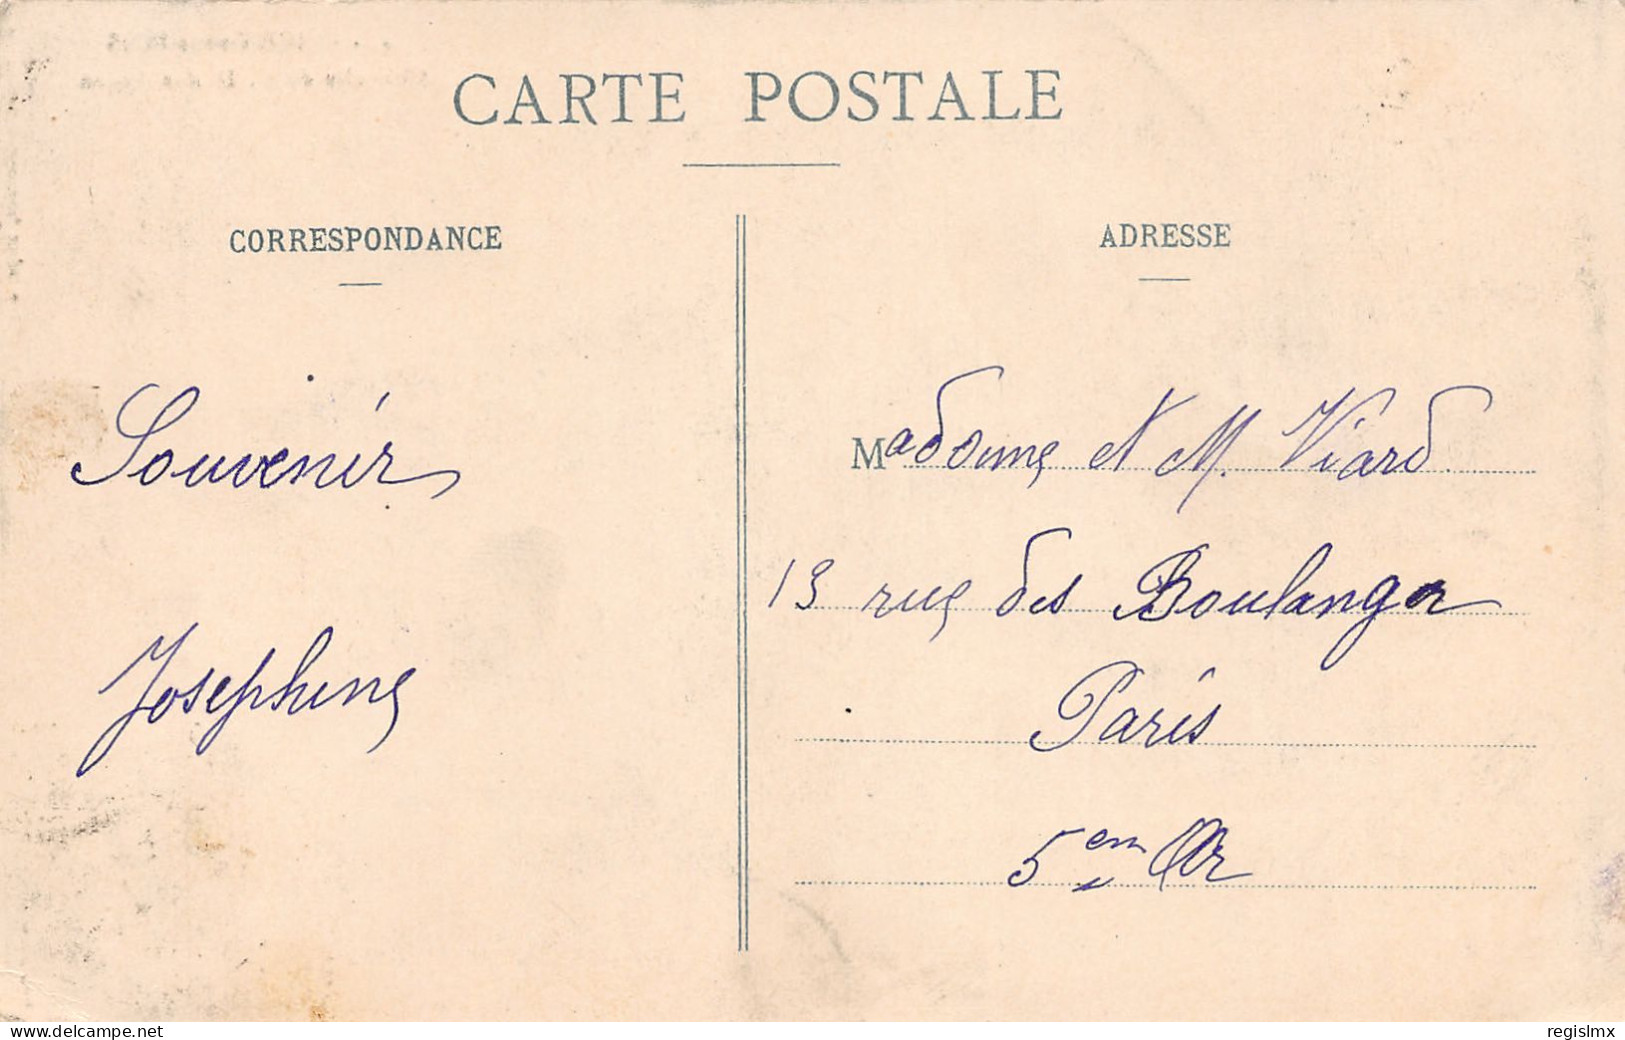 CARTE POSTALE
CORRESPONDANCE
Souvenir
Josephine
ADRESSE
Madame et M. Viard
13 rue des Boulanger
Paris
5em Ar
www.delcampe.net
regislmx